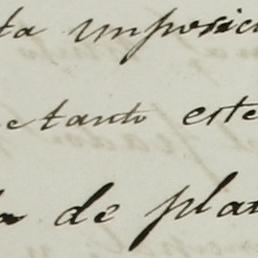 ta imposici
ctanto este
de plat